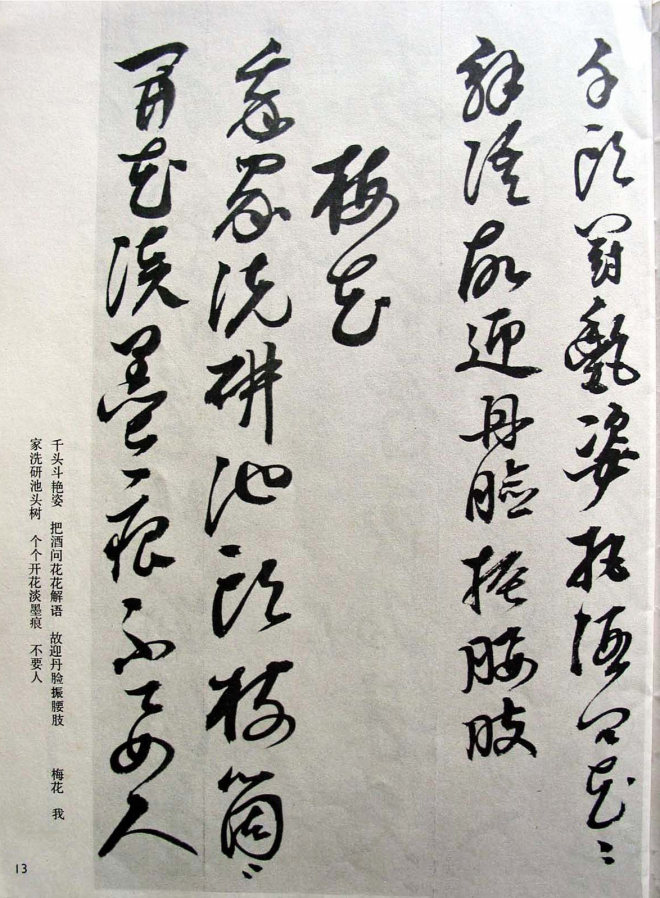 千頭鬥艷姿把酒問花〻
解語故迎丹臉振腰肢
梅花
我家洗研池頭樹箇〻
開花淡墨痕不要人
千头斗艳姿　把酒问花花解语　故迎丹脸振腰肢　　梅花　我
家洗研池头树　个个开花淡墨痕　不要人
13